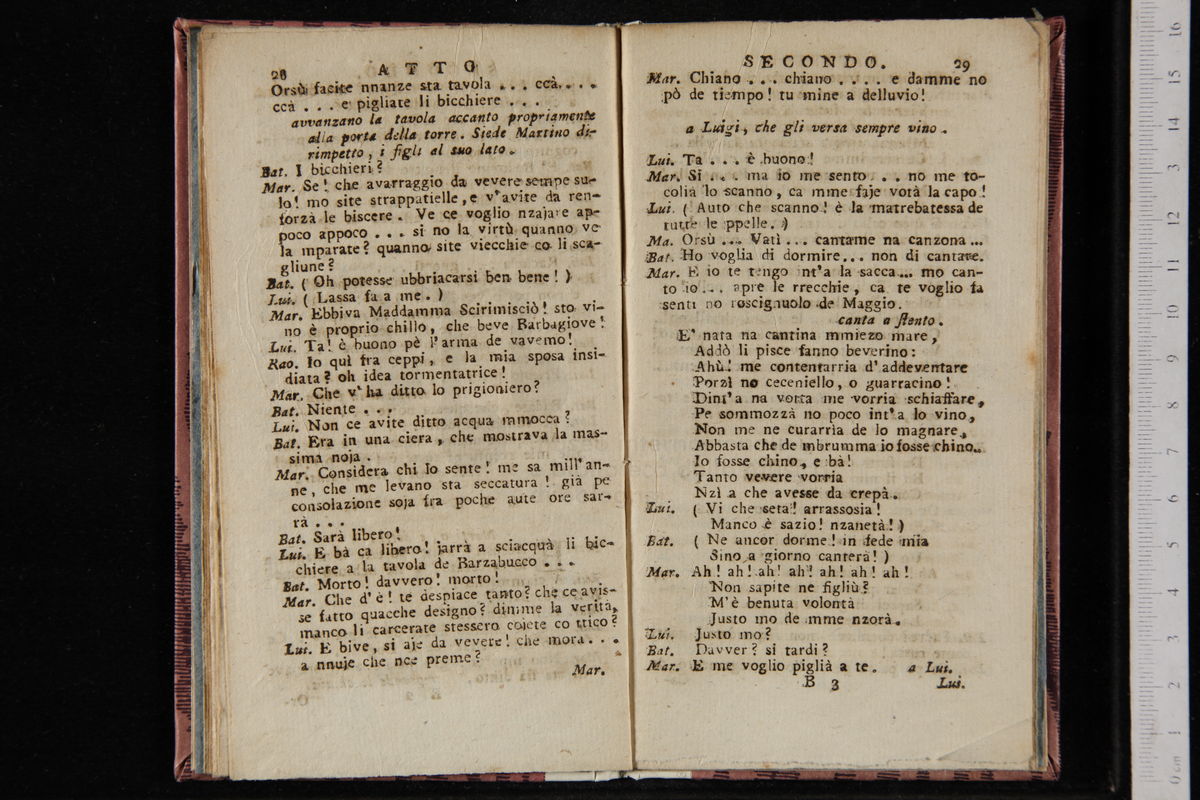 28 ATTO
Orsù facite nnanze sta tavola . . . ccà. . . .
ccà . . . e pigliate li bicchiere . . .
avvanzano la tavola accanto propriamente
alla porta della torre. Siede Martino di-
rimpetto, i figli al suo lato.
Bat. I bicchieri?
Mar. Se! che avarraggio da vevere sempe su-
lo! mo site strappatielle, e v'avite da ren-
forzà le biscere. Ve ce voglio nzajare ap-
poco appoco . . . si no la virtù quanno ve
la mparate? quanno site viecchie co li sca-
gliune?
Bat. ( Oh potesse ubbriacarsi ben bene! )
Lui. ( Lassa fa a me. )
Mar. Ebbiva Maddamma Scirimisciò! sto vi-
no è proprio chillo, che beve Barbagiove!
Lui. Ta! è buono pè l'arma de vavemo!
Rao. Io quì fra ceppi, e la mia sposa insi-
diata? oh idea tormentatrice!
Mar. Che v'ha ditto lo prigioniero?
Bat. Niente . . .
Lui. Non ce avite ditto acqua mmocca?
Bat. Era in una ciera, che mostrava la mas-
sima noja.
Mar. Considera chi lo sente! me sa mill'an-
ne, che me levano sta seccatura! già pe
consolazione soja fra poche aute ore sar-
rà . . .
Bat. Sarà libero!
Lui. E bà ca libero! jarrà a sciacquà li bic-
chiere a la tavola de Barzabucco . . .
Bat. Morto! davvero! morto!
Mar. Che d'è! te despiace tanto? che ce avis-
se fatto quacche designo? dimme la verità,
manco li carcerate stessero cojete co ttico?
Lui. E bive, si aje da vevere! che mora. . .
a nnuje che nce preme?
Mar.
SECONDO. 29
Mar. Chiano . . . chiano . . . . e damme no
pò de tiempo! tu mine a delluvio!
a Luigi, che gli versa sempre vino.
Lui. Ta . . . è buono!
Mar. Si . . . ma io me sento . . . no me to-
colià lo scanno, ca mme faje votà la capo!
Lui. ( Auto che scanno! è la matrebatessa de
tutte le ppelle. )
Ma. Orsù ... Vatì ... cantame na canzona ...
Bat. Ho voglia di dormire... non di cantare.
Mar. E io te tengo int'a la sacca... mo can-
to io... apre le rrecchie, ca te voglio fa
senti no roscignuolo de Maggio.
canta a stento.
E' nata na cantina mmiezo mare,
Addò li pisce fanno beverino:
Ahù! me contentarria d'addeventare
Porzì no ceceniello, o guarracino!
Dint'a na votta me vorria schiaffare,
Pe sommozzà no poco int'a lo vino,
Non me ne curarrìa de lo magnare,
Abbasta che de mbrumma io fosse chino..
Io fosse chino, e bà!
Tanto vevere vorria
Nzì a che avesse da crepà.
Lui. ( Vi che seta! arrassosia!
Manco è sazio! nzanetà! )
Bat. ( Ne ancor dorme! in fede mia
Sino a giorno canterà! )
Mar. Ah! ah! ah! ah! ah! ah! ah!
Non sapite ne figliù?
M'è benuta volontà
Justo mo de mme nzorà.
Lui. Justo mo?
Bat. Davver? sì tardi?
Mar. E me voglio piglià a te. a Lui.
B 3 Lui.